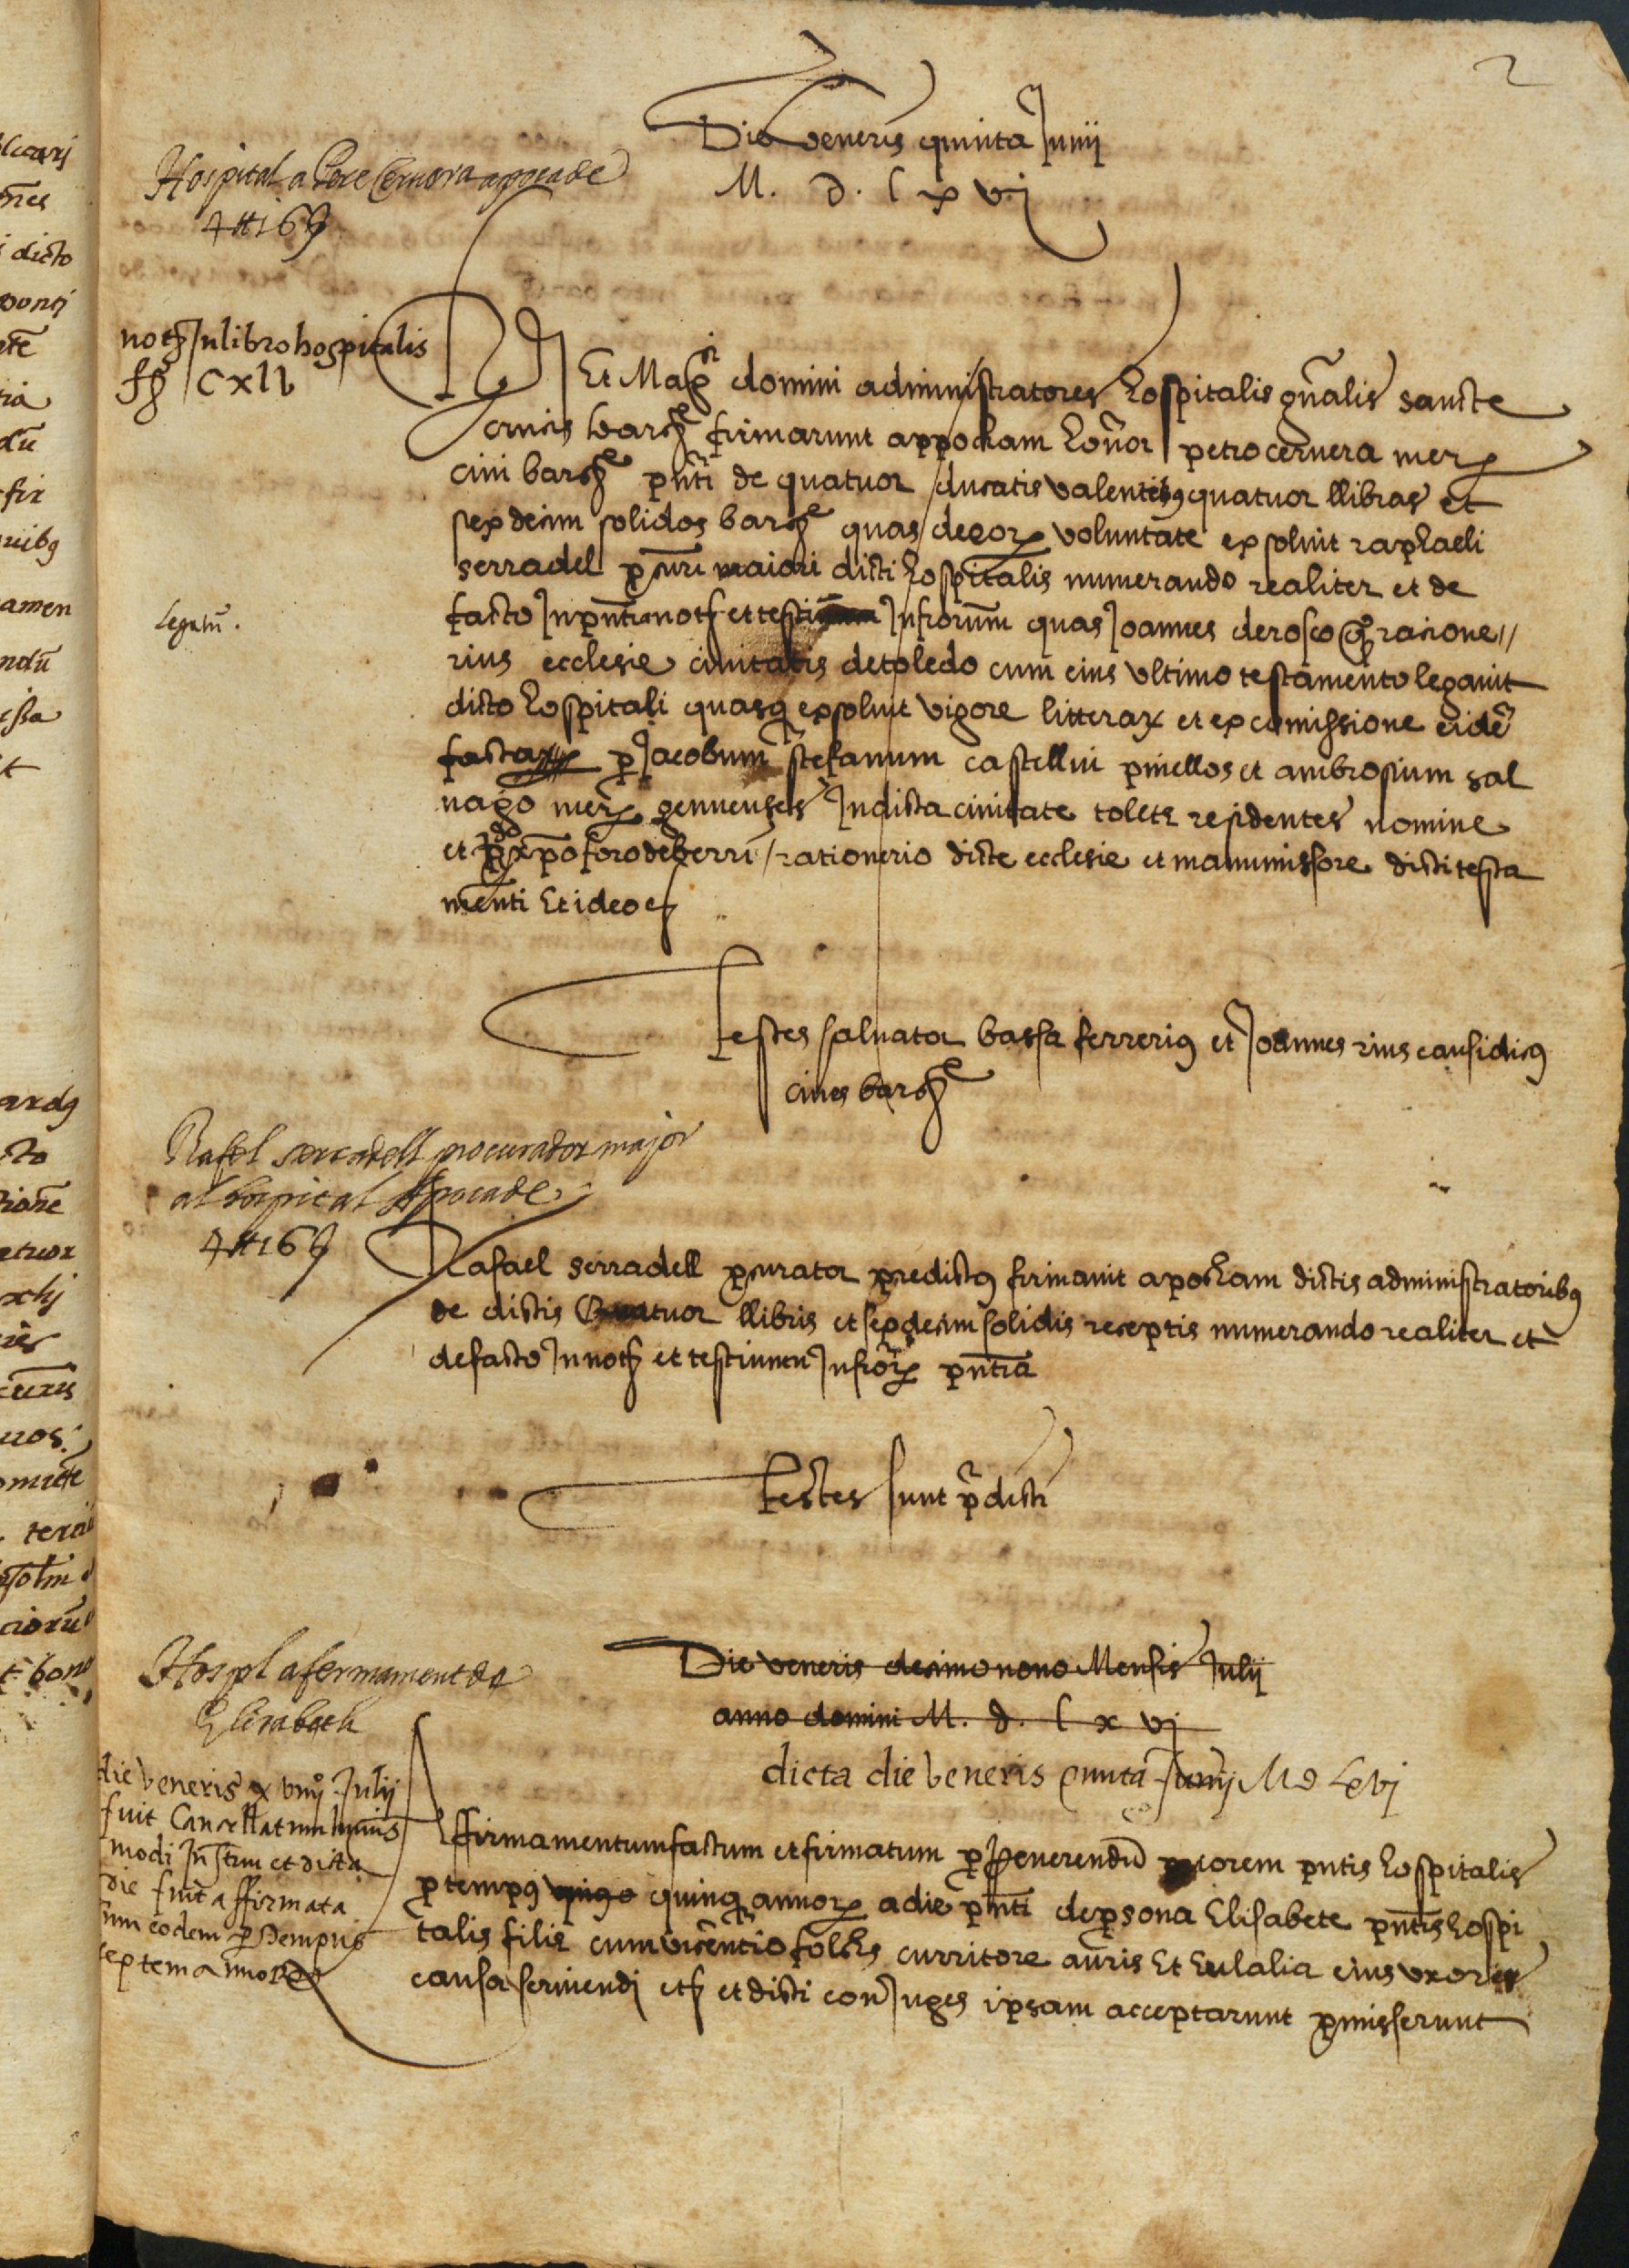 2
Die veneris quinta Junij
M. d. lxvj
Hospital a Pere Cervera apoca de
4 ll 16 s
notr Jn libro hospitalis
CXII
Rdi Et Magci domini administratores hospitalis gñalis sancte
crucis barne firmarunt appocham honor petro cervera merr
civi barne pnti de quatuor ducatis valentibus quatuor llibras et
sexdecim solidos barne quas de eorr voluntate exsolvit raphaeli
serradel pcuri maiori dicti hospitalis numerando realiter et de
legatū.
facto Jn pntia notr et testium Jnfrorum quas Joannes de rosco q̊ racione//
rius ecclesie civitatis de toledo cum eius ultimo testamento legavit
dicto hospitali quasq exsolvit vigore litterar et ex comissione eidē
factarr p Jacobum stefanum castellvi pinellos et ambrosium sal
vago merr genuenses Jn dicta civitate toleti residentes nomine
et p xpoforo de berri / rationerio dicte ecclesie et manumissore dicti testa
menti Et ideo etc
Testes salvator bassa ferrerius et Joannes rius causidicus
cives barne
Rafel serradell procurador major
al hospital Apoca de
4 ll 16 s
Rafael serradell pcurator predictus firmavit apocham dictis administratoribus
de dictis Quatuor llibris et sexdecim solidis receptis numerando realiter et
de facto Jn notr et testium Jnfrorr pntia
Testes sunt pdicti
Hospl afermament de
Elisabeth
Die veneris decimo nono Mensis Julij
anno domini M. d. l x vj
dicta die veneris quinta Junij M d Lxvj
die veneris x viiij Julij
fuit Cancellatum huius
modi Jnstrm et dicta
die fuit affirmata
cum eodem p tempus
septem annorr
Affirmamentum factum et firmatum p Reverendū priorem pntis hospitalis
p tempus quinq annorr a die pnti de psona Elisabete pntis hospi
talis filie cum vicentio folchs curritore auris Et Eulalia eius uxore
causa serviendj etc et dicti conJuges ipsam acceptarunt pmisserunt